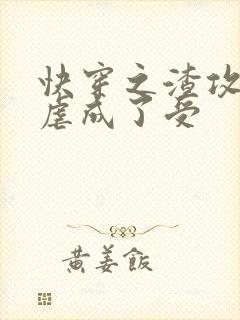 快穿之渣攻
虐成了受
黄姜飯